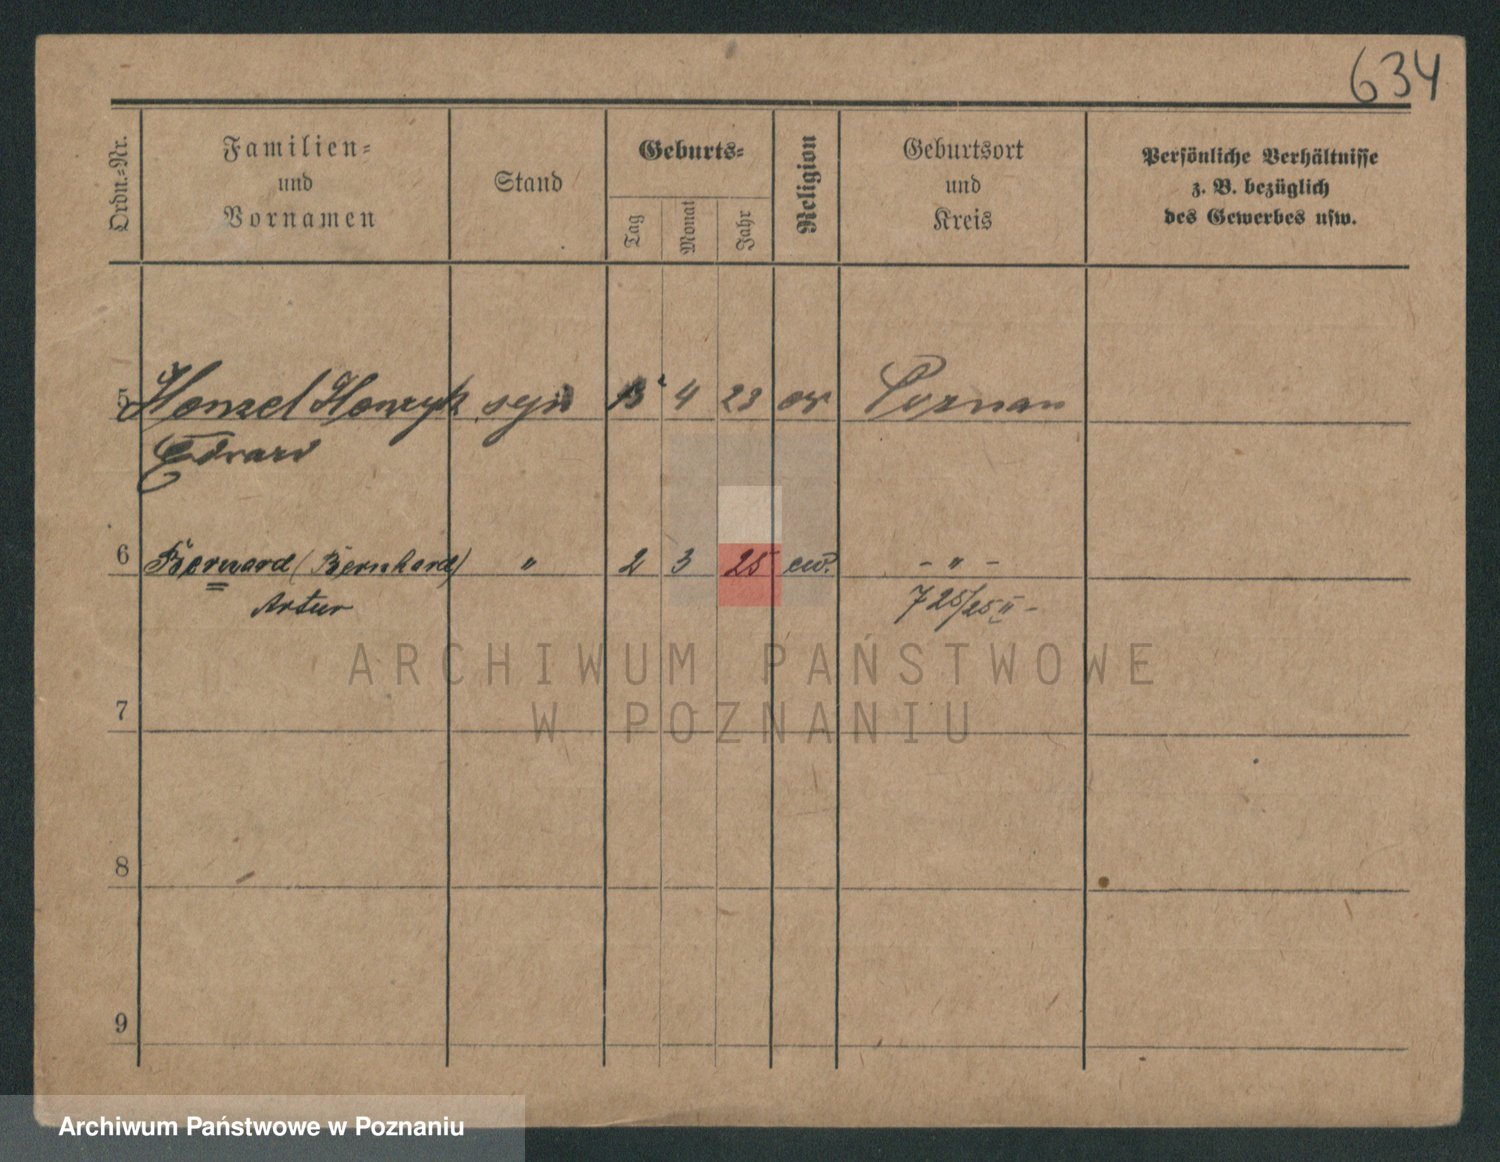 634
Ordn.-Nr.
Familien-
und
Vornamen
Stand
Geburts-
Tag
Monat
Jahr
Religion
Geburtsort
und
Kreis
Persönliche Verhältnisse
z. B. bezüglich
des Gewerbes usw.
5 Henzel Henryk syn 4 23 ew Poznan
Edward
6 Bernard (Bernhard) " 2 3 25 ew. - " -
Artur 725/25 II -
ARCHIWUM PAŃSTWOWE
W POZNANIU
7
8
9
Archiwum Państwowe w Poznaniu